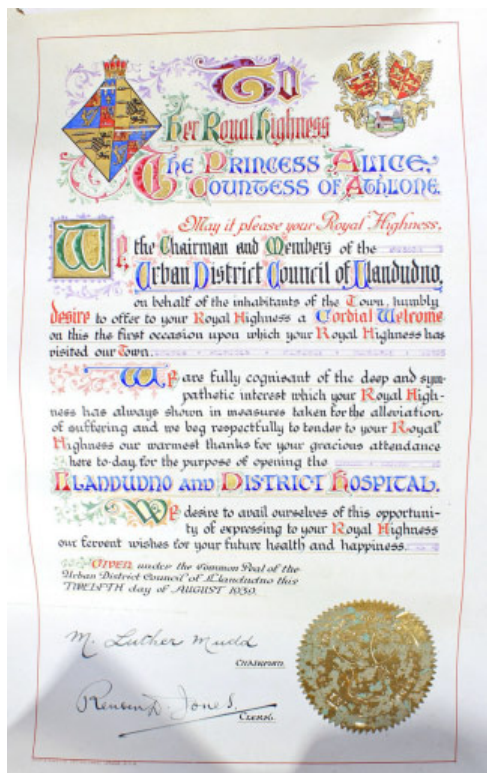 To
Her Royal Highness
The Princess Alice,
Countess of Athlone.
May it please your Royal Highness,
We the Chairman and Members of the
Urban District Council of Llandudno,
on behalf of the inhabitants of the Town, humbly
desire to offer to your Royal Highness a Cordial Welcome
on this the first occasion upon which your Royal Highness has
visited our Town.
We are fully cognisant of the deep and sym-
pathetic interest which your Royal High-
ness has always shown in measures taken for the alleviation
of suffering and we beg respectfully to tender to your Royal
Highness our warmest thanks for your gracious attendance
here to-day for the purpose of opening the
Llandudno and District Hospital.
We desire to avail ourselves of this opportuni-
ty of expressing to your Royal Highness
our fervent wishes for your future health and happiness.
Given under the Common Seal of the
Urban District Council of Llandudno this
TWELFTH day of AUGUST 1939.
M. Luther Mudd
Chairman.
Jones.
Clerk.